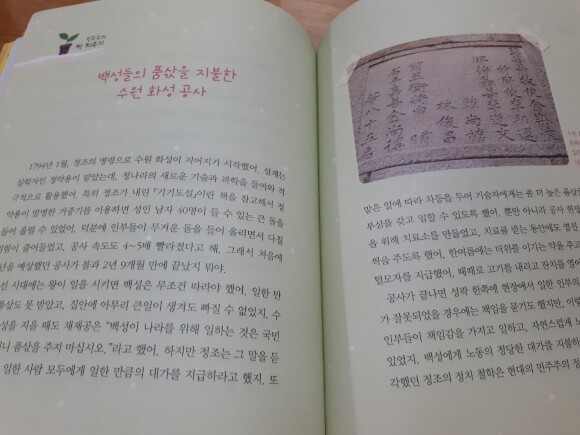 백성들의 품삯을 지불한
수원 화성 공사
1794년 1월, 정조의 명령으로 수원 화성이 지어지기 시작했어. 설계는
실학자인 정약용이 맡았는데, 청나라의 새로운 기술과 과학을 들여와 적
극적으로 활용했어. 특히 정조가 내린 『기기도설』이란 책을 참고해서 정
약용이 발명한 거중기를 이용하면 성인 남자 40명이 들 수 있는 큰 돌을
들어 올릴 수 있었어. 덕분에 인부들이 무거운 돌을 들어 올리면서 다칠
위험이 줄어들었고, 공사 속도도 4~5배 빨라졌다고 해. 그래서 처음에
년을 예상했던 공사가 불과 2년 9개월 만에 끝났지 뭐야.
선 시대에는 왕이 일을 시키면 백성은 무조건 따라야 했어. 일한 만
품삯도 못 받았고, 집안에 아무리 큰일이 생겨도 빠질 수 없었지. 수
성을 지을 때도 채제공은 "백성이 나라를 위해 일하는 것은 국민
니 품삯을 주지 마십시오."라고 했어. 하지만 정조는 그 말을 듣
일한 사람 모두에게 일한 만큼의 대가를 지급하라고 했지. 또
맡은 일에 따라 차등을 두어 기술자에게는 좀 더 높은 품삯
부심을 갖고 일할 수 있도록 했어. 뿐만 아니라 공사 현장
을 위해 치료소를 만들었고, 치료를 받는 동안에도 엽전
씩을 주도록 했어. 한여름에는 더위를 이기는 약을 주
털모자를 지급했어. 때때로 고기를 내리고 잔치를 열어
공사가 끝나면 성곽 한쪽에 현장에서 일한 인부의
가 잘못되었을 경우에는 책임을 묻기도 했지만, 이
인부들이 책임감을 가지고 일하고, 자연스럽게 노
있었지. 백성에게 노동의 정당한 대가를 지불하
각했던 정조의 정치 철학은 현대의 민주주의 정